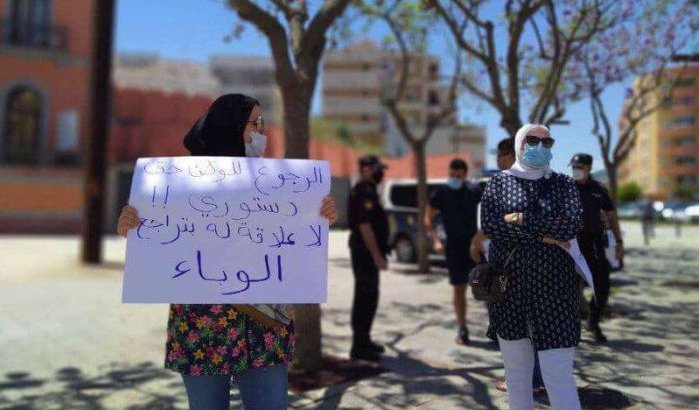 الرجوع للوطن حق
دستوري !!
لا علاقة له بتراجع
الوباء